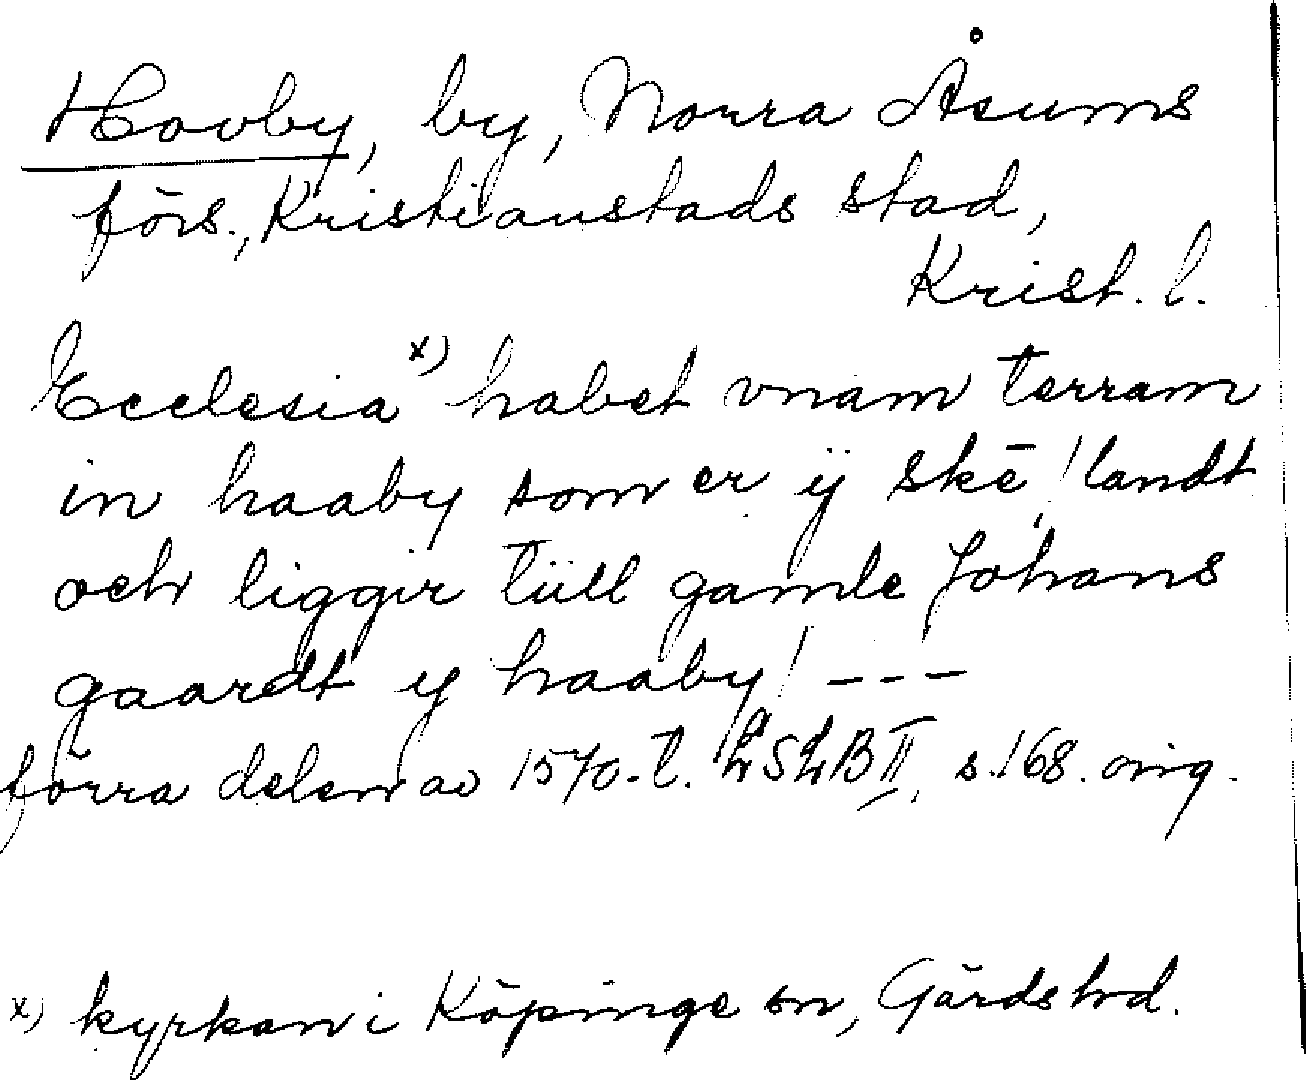 Hovby, by, Norra Åsums
förs., Kristianstads stad,
Krist. l.
Ecclesia x) habet vnam terram
in haaby som er ÿ skē! landt
och liggir tüll gamle Johans
gaardt y haaby! ---
förra delen av 1570-t. LSLB II, s. 168. orig.
x) kyrkan i Köpinge sn, Gärds hd.